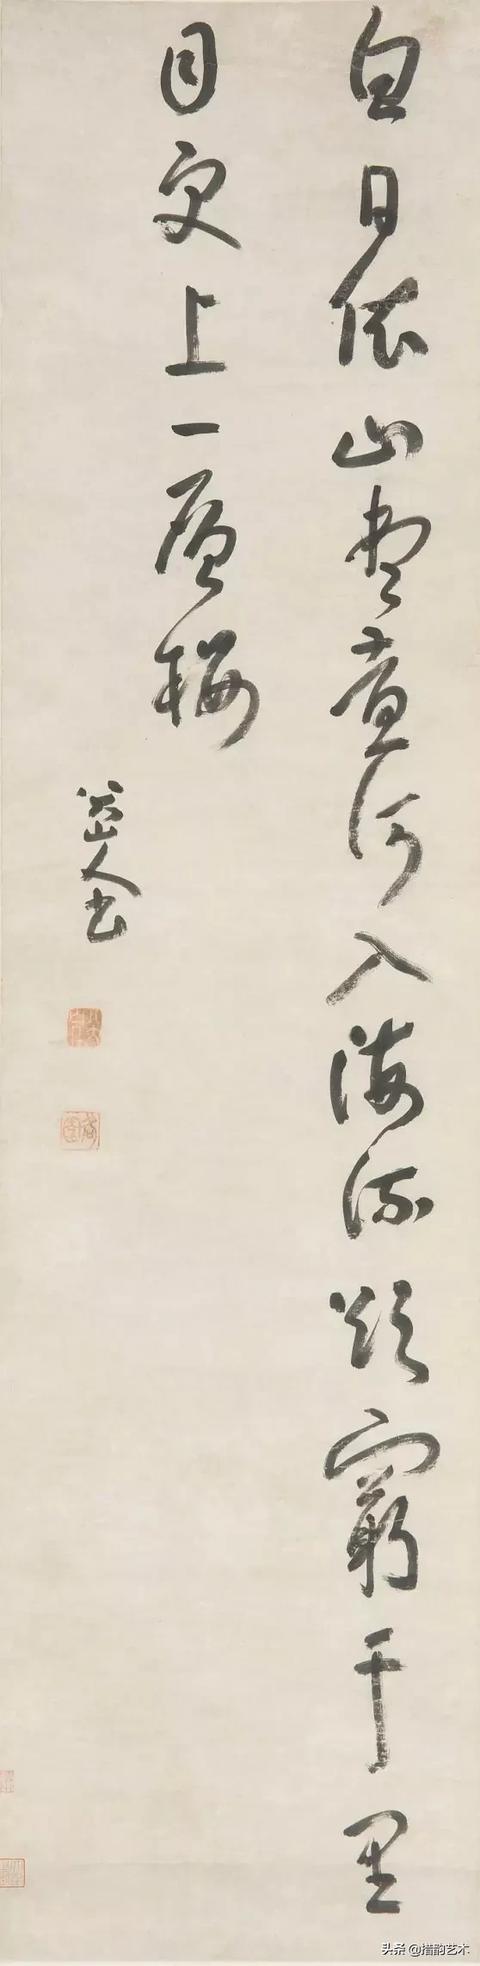 白日依山尽黄河入海流欲窮千里
目更上一層楼
八大山人書
头条 @措韵艺术